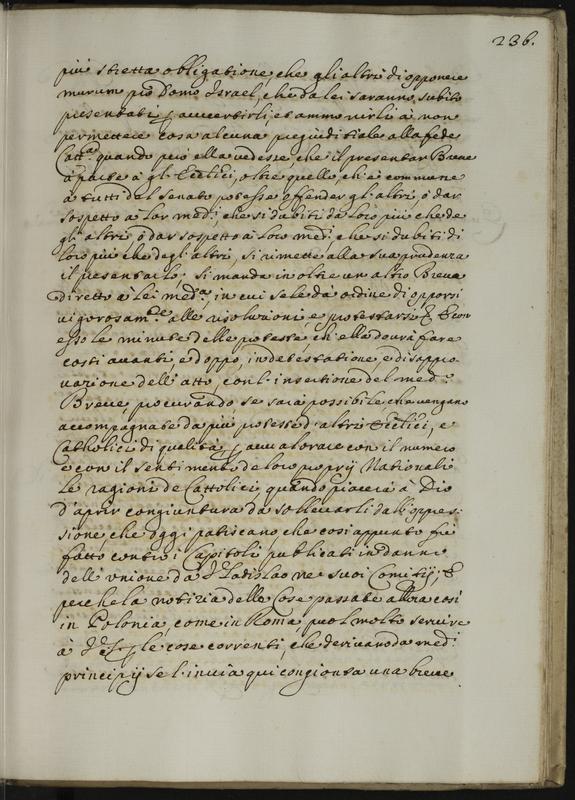 236.
più stretta obligatione, che gli altri di opponere
murum pro Domo Israel, che da lei saranno subito
presentati p auvertirli, et ammonirli à non
permettere cosa alcuna pregiuditiale alla fede
Catt.ca quando però ella vedesse, che il presentar Breve
à parte à gli Eccl.ici, oltre quello ch'è commune
à tutti del Senato potesse offender gl'altri, ò dar
sospetto à lor med.i, che si dubiti da loro più che de
gl'altri, ò dar sospetto à loro med.i che si dubiti di
loro più che degl'altri, si rimette alla sua prudenza
il presentarli; si manda in oltre un altro Breve
diretto à lei med.a, in cui se le dà ordine di opporsi
vigorosam.te alle risolutioni, e protestarsi, & con
esso le minute delle proteste, ch'ella dovrà fare
costi avanti, e doppo, in detestatione, e disappro
vatione dell'atto, con l'insertione del med.o
Breve, procurando se sarà possibile che vengano
accompagnate da più proteste d'altri Eccl.ici, e
Catholici di qualità, p avvalorare con il numero
e con il sentimento de loro proprij Nationali
le ragioni de Cattolici, quando piaccia à Dio
d'aprir congiuntura da sollevarli dall'oppres:
sione, che oggi patiscano, che così appunto fù
fatto contro i Capitoli publicati in danno
dell'unione da Vladislao ne suoi Comitij; &
perche la notizia delle Cose passate allora così
in Polonia, come in Roma, puol molto servire
à p le cose correnti, che derivano da med.i
principij se l'invia qui congionta una breve